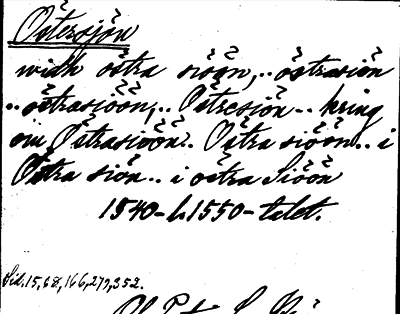 Östersjön
widh östra siöön,.. östrasiön
..östrasiöön,.. Östresiön.. kring
om Östrasiöön.. Östra siöön.. i
Östra siön.. i östra Siöön
1540- h. 1550-talet.
Sid. 15, 68, 166, 279, 352.